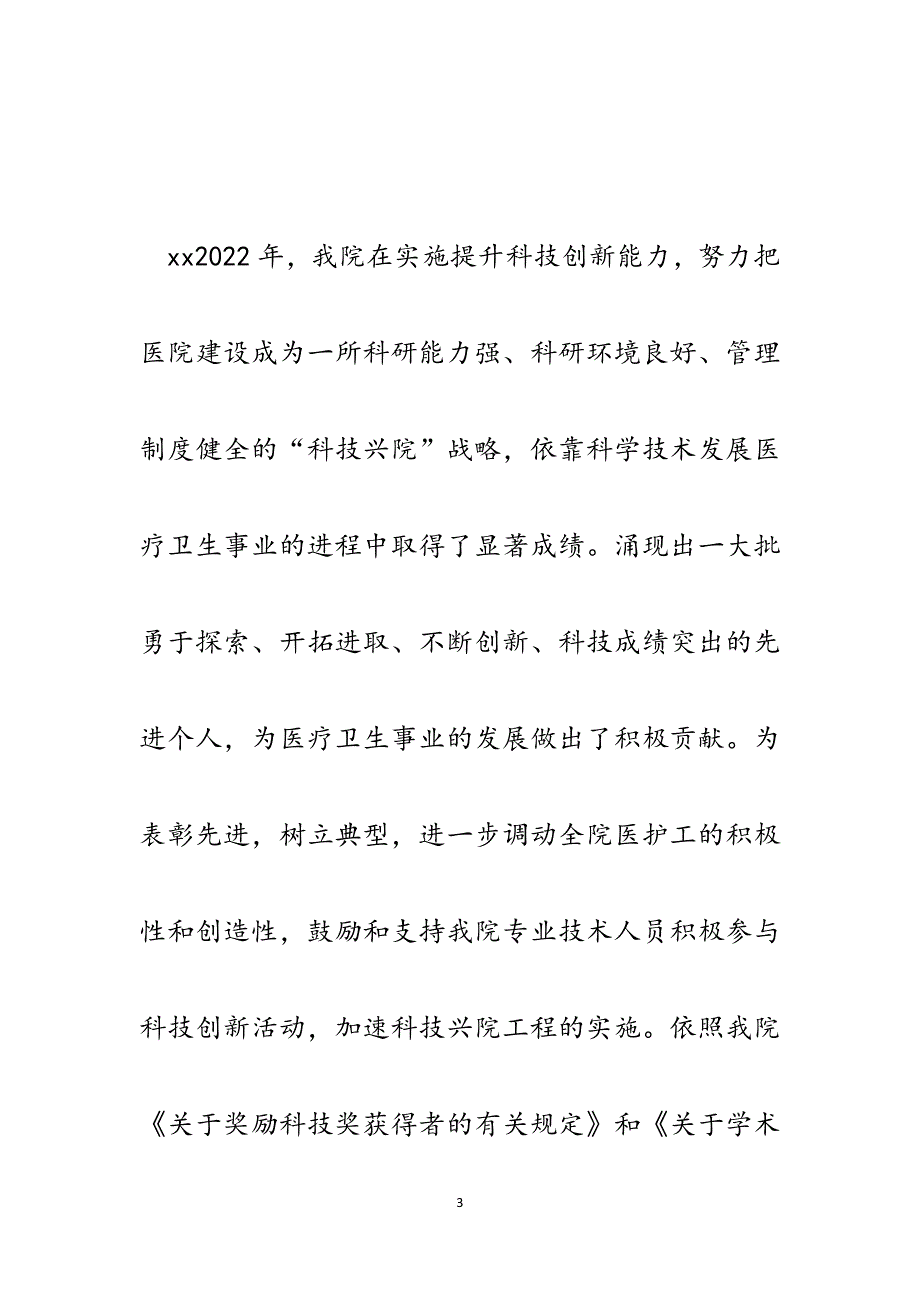 xx2022年，我院在实施提升科技创新能力，努力把
医院建设成为一所科研能力强、科研环境良好、管理
制度健全的“科技兴院”战略，依靠科学技术发展医
疗卫生事业的进程中取得了显著成绩。涌现出一大批
勇于探索、开拓进取、不断创新、科技成绩突出的先
进个人，为医疗卫生事业的发展做出了积极贡献。为
表彰先进，树立典型，进一步调动全院医护工的积极
性和创造性，鼓励和支持我院专业技术人员积极参与
科技创新活动，加速科技兴院工程的实施。依照我院
《关于奖励科技奖获得者的有关规定》和《关于学术
3